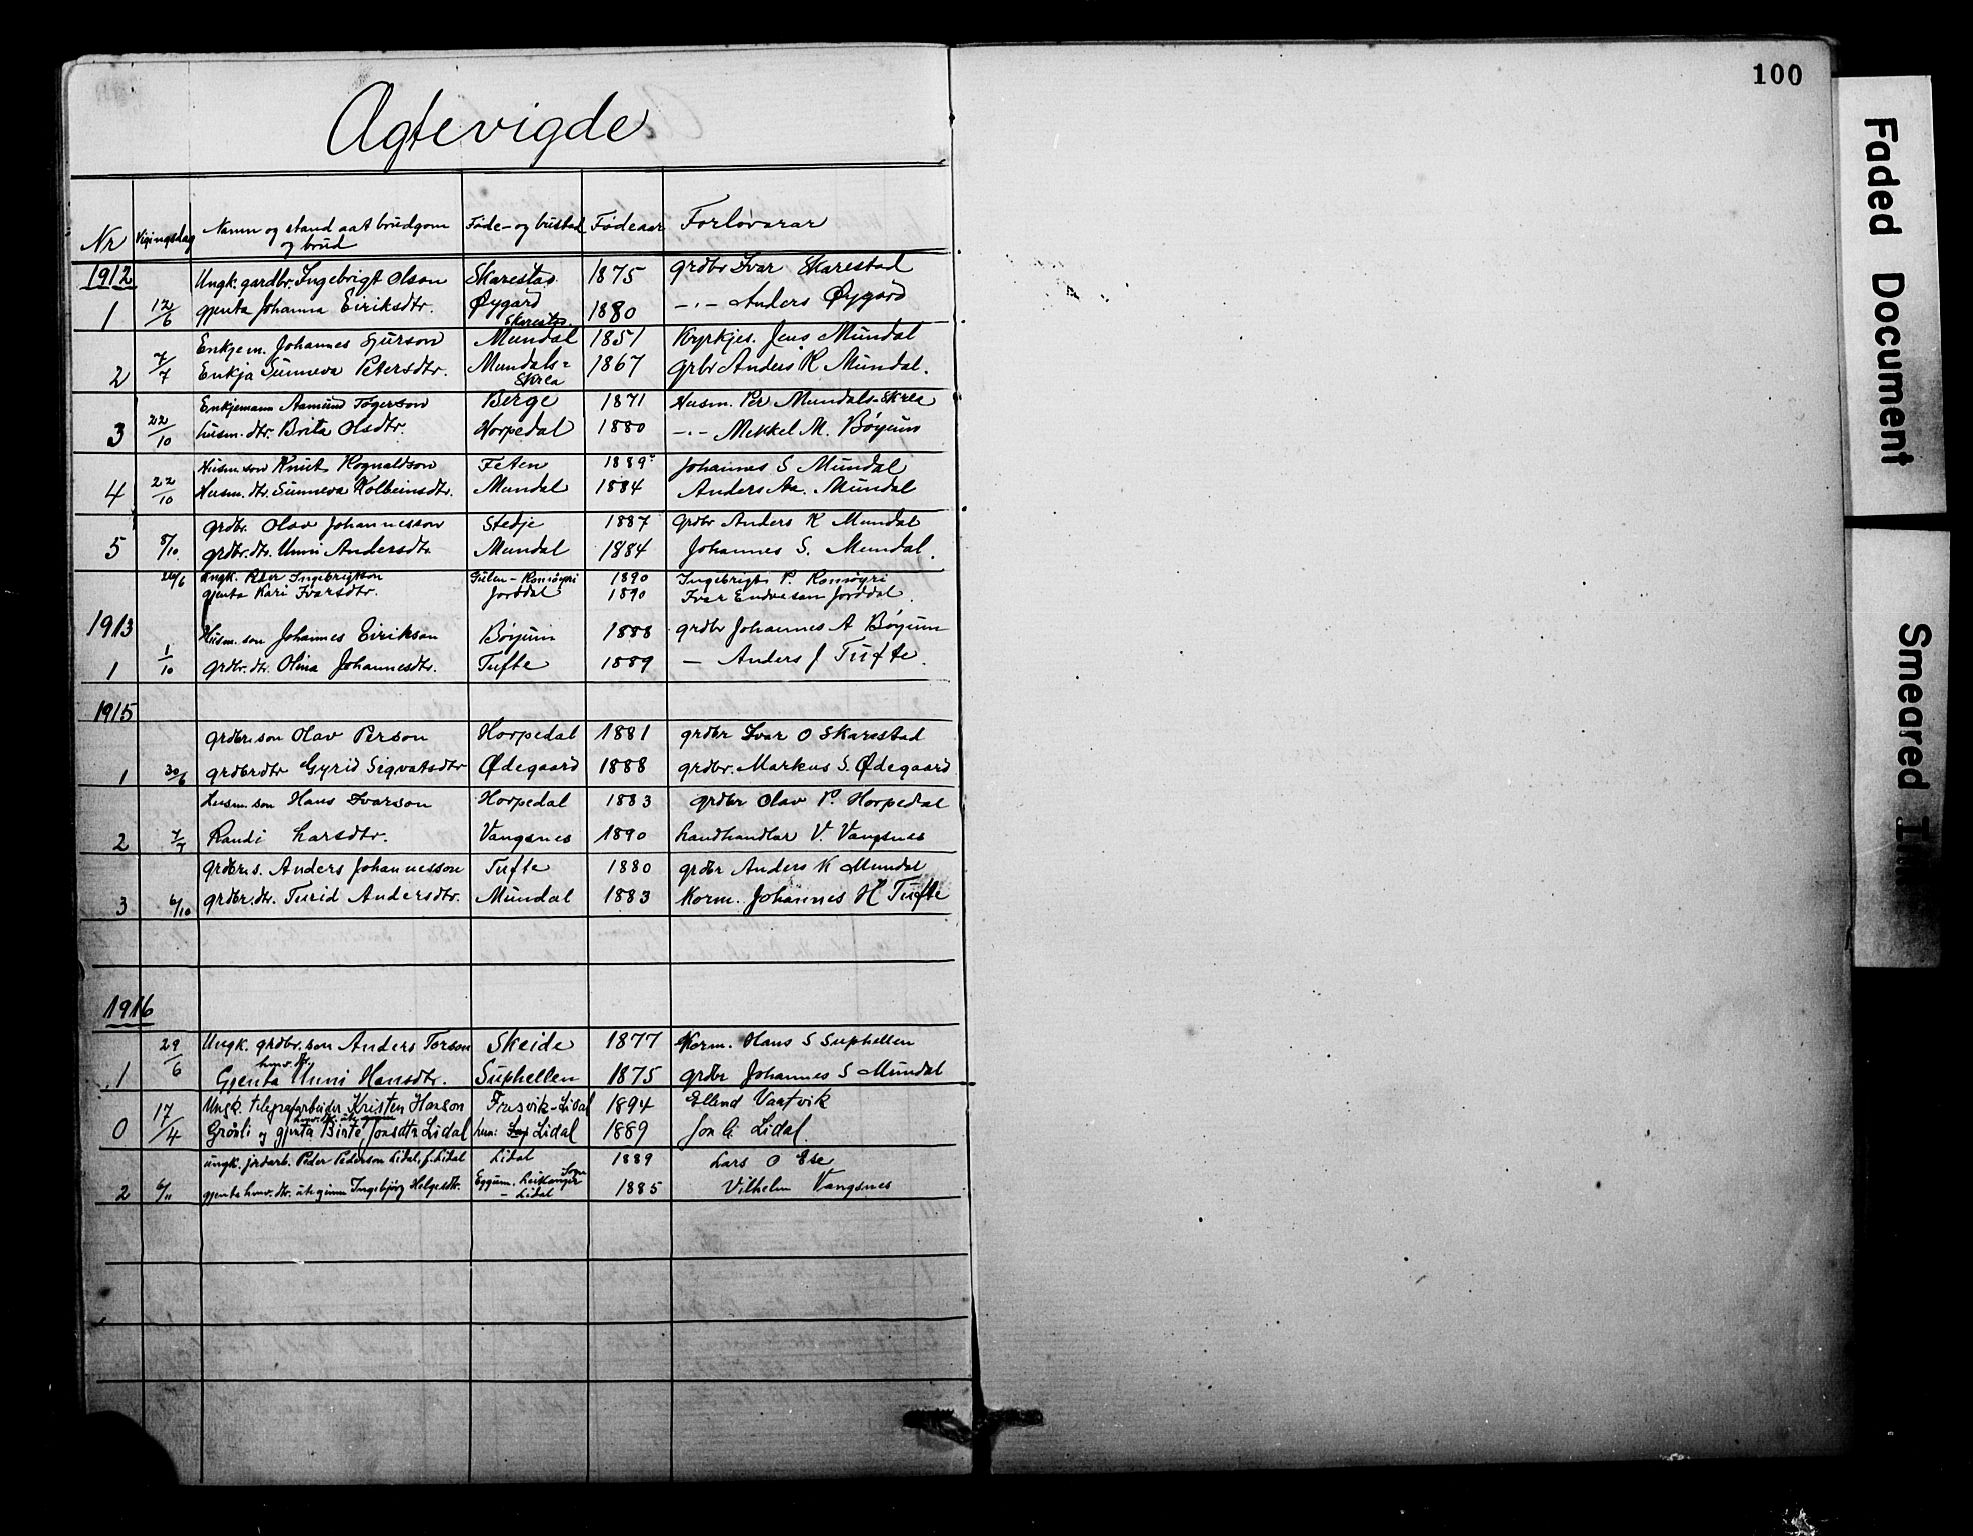 100
Agtevigde
Nr Vigingsdag Namn og stand aat brudgom og brud Føde- og bustad Fødeaar Forlovarar
1912 Ungk. gardbr. Ingebrigt Olson Skarestad 1875 grdbr Ivar Skarestad
1 12/6 gjenta Johanna Eiriksdtr. Øygard Skarestad 1880 -"- Anders Øygard
Enkjem. Johannes Sjurson Mundal 1851 Kyrkjes. Jens Mundal
2 7/7 Enkja Sunneva Petersdtr. Mundals=Skrea 1867 Grbr Anders K Mundal.
Enkjemann Aamund Togerson Berge 1871 Husm. Per Mundals-Skrea
3 22/10 husm. dtr. Brita Olsdtr. Horpedal 1880 -"- Mikkel M. Bøyum
Husm. son Knut Rognaldson Feten 1889 Johannes S Mundal
4 22/10 Husm. dtr. Sunneva Kolbeinsdtr. Mundal 1884 Anders Aa. Mundal
grdbr. Olav Johannesson Stedje 1887 Grdbr Anders K Mundal
5 8/10 grdbr. dtr. Unni Andersdtr Mundal 1884 Johannes S. Mundal.
26/6 ungk. Peer Ingebrigtson Gulen - Romøyri 1890 Ingebrigt P. Romøyri
gjenta Kari Ivarsdtr. Jorddal 1890 Ivar Endresen Jorddal.
1913 Husm. son Johannes Eirikson Bøyum 1888 grdbr Johannes A Bøyum
1 1/10 grdbr. dtr. Olina Johannesdtr. Tufte 1889 — Anders J Tufte.
1915
grdbr. son Olav Person Horpedal 1881 grdbr Ivar O Skarestad
1 30/6 grdbr dtr Gyrid Sigvatsdtr Ødegaard 1888 grdbr. Markus S. Ødegaard
husm. son Hans Ivarson Horpedal 1883 grdbr Olav P. Horpedal
2 7/7 Randi Larsdtr. Vangsnes 1890 Landhandlar V. Vangsnes
grdbr. s. Anders Johannesson Tufte 1880 grdbr Anders K Mundal
3 6/10 grdbr. dtr. Turid Andersdtr. Mundal 1883 Korm. Johannes H Tufte
1916
29/6 Ungk. grdbr. son Anders Torson Skeide 1877 Korm. Hans S Suphellen
1 Gjenta Unni Hansdtr. Suphellen 1875 grdbr Johannes S Mundal
17/4 Ungk. telegrafarbeider Kristen Hanson Fresvik-Lidal 1894 Ellend Vartvik
0 Grønli og gjenta Birte Jonsdtr Lidal Lidal 1889 Jon G. Lidal.
ungk. jordarb. Peder Pederson Lidal, f. Lidal Lidal 1889 Lars O Ese
2 6/11 gjenta hmv. dtr. utan Ingebjørg Helgesdtr. Eggum. Leikanger Sogn - Lidal 1885 Vilhelm Vangsnes
Faded Document
Smeared